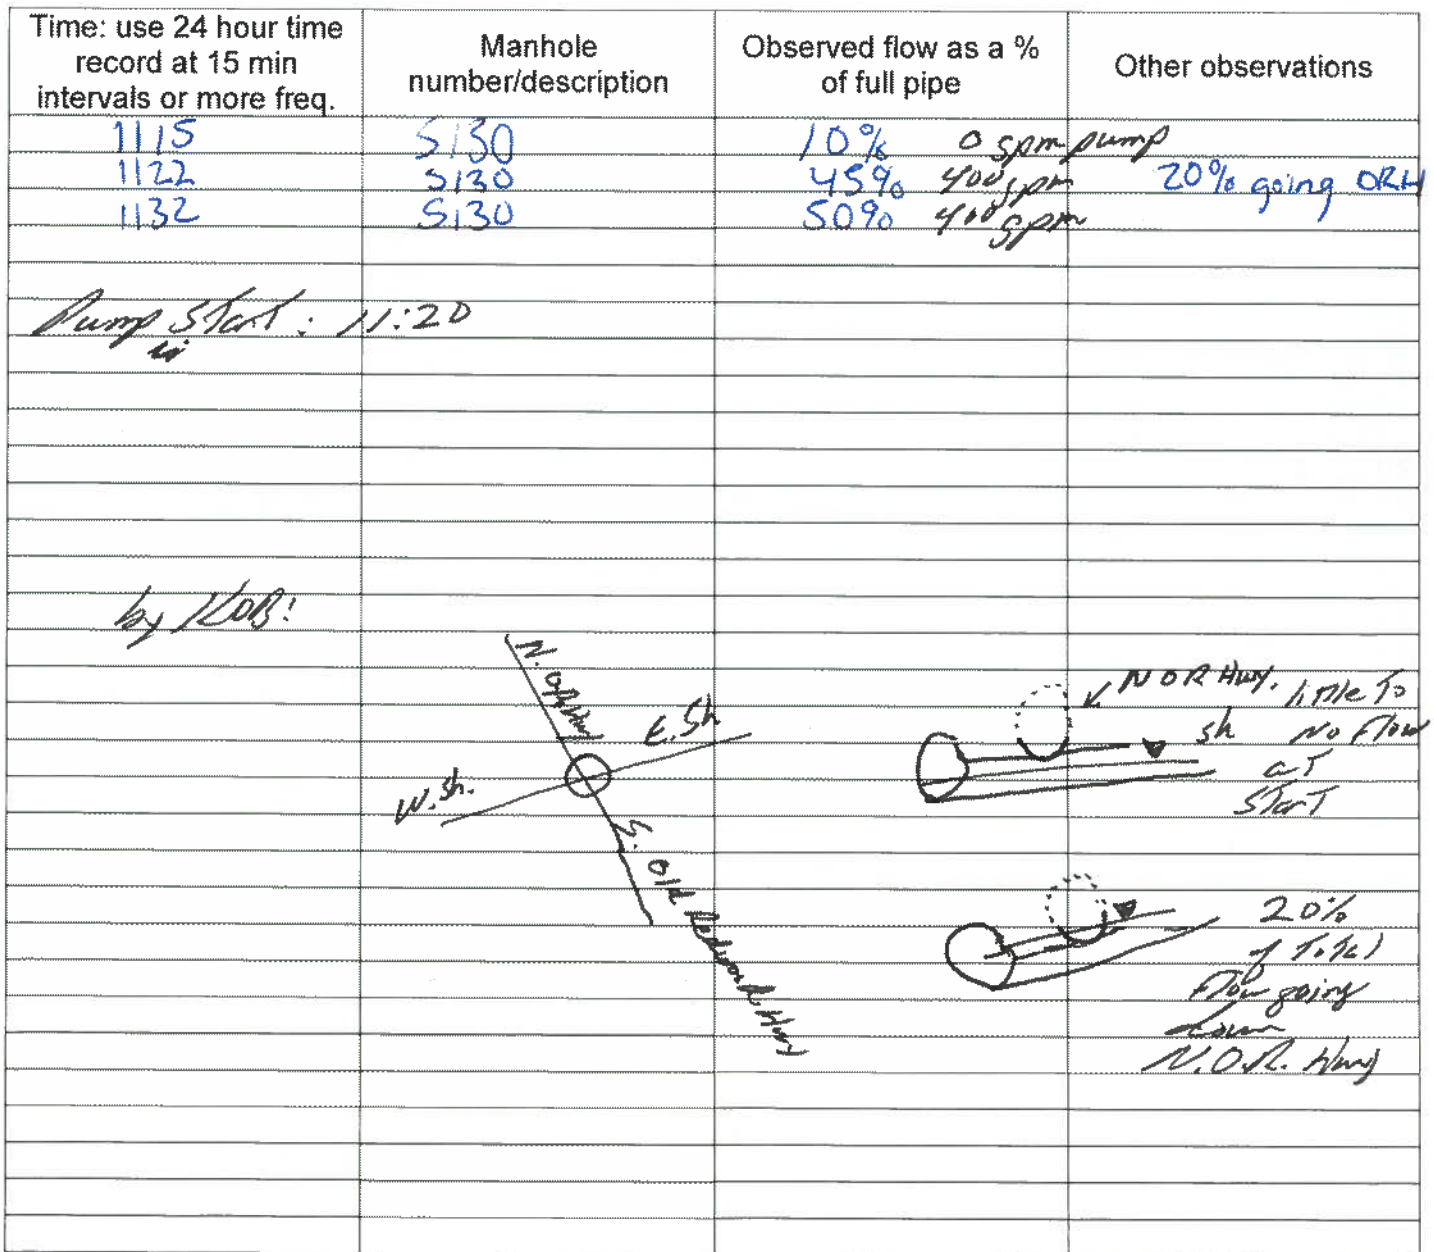 Time: use 24 hour time record at 15 min intervals or more freq.
Manhole number/description
Observed flow as a % of full pipe
Other observations
1115 S130 10% 0 gpm pump
1122 S130 45% 400 gpm 20% going ORH
1132 S130 50% 400 gpm
Pump Start: 11:20
by KOB!
N. OR Hwy
E. Sh
W. Sh.
S. Old Redwood Hwy
N OR Hwy.
little to
sh No Flow
at
Start
20%
of Total
Flow going
down
N.O.R. Hwy